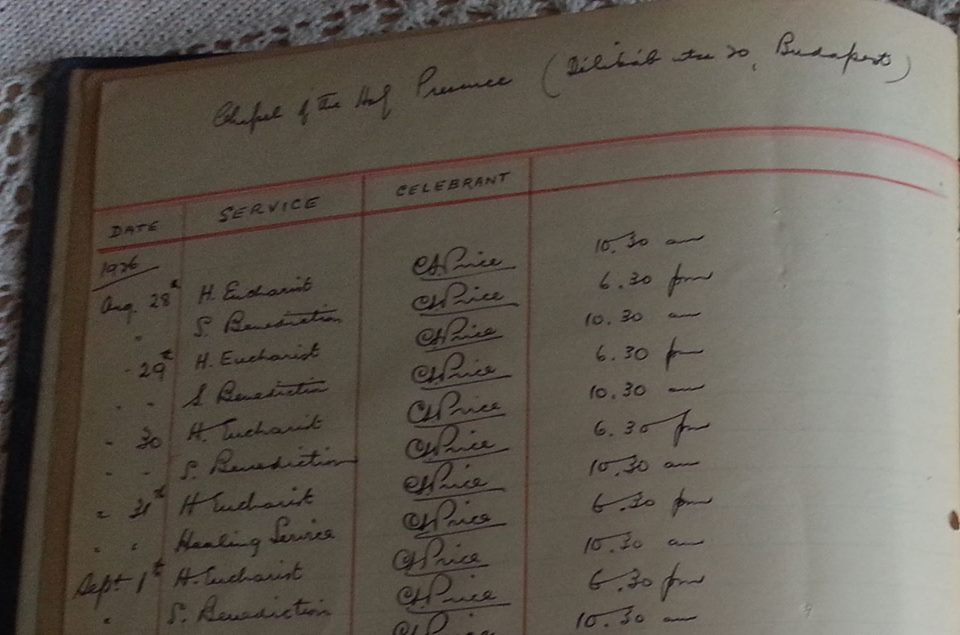 Chapel of the Holy Presence (Délibáb utca 20, Budapest)
DATE SERVICE CELEBRANT
1926
Aug. 28th H. Eucharist CHPrice 10.30 am
" S. Benediction CHPrice 6.30 pm
" 29th H. Eucharist CHPrice 10.30 am
" " S. Benediction CHPrice 6.30 pm
" 30 H. Eucharist CHPrice 10.30 am
" " S. Benediction CHPrice 6.30 pm
" 31st H Eucharist CHPrice 10.30 am
" " Healing Service CHPrice 6.30 pm
Sept. 1st H. Eucharist CHPrice 10.30 am
" S. Benediction CHPrice 6.30 pm
CHPrice 10.30 am